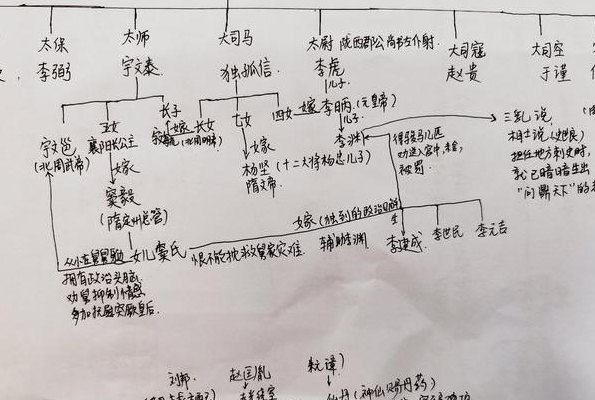 太保
李弼
太师
宇文泰
大司马
独孤信
太尉 陇西郡公 尚书左仆射
李虎
大司寇
赵贵
大司空
于谨
儿子
长子
五女
长女
七女
四女 嫁 李昞(元皇帝)
宇文邕
(北周武帝)
襄阳长公主
嫁
窦毅
(隋定州总管)
嫁
杨坚 (十二大将杨忠儿子)
隋文帝
儿子
李渊
得骏马几匹
劝送入宫中,未舍,
被罚
三乱说
相士说(史世良)
担任地方刺史时,
就已暗暗生出
"问鼎天下"的
嫁(独到的政治见解
辅助李渊
生
李建成
李世民
李元吉
女儿窦氏
恨不能挽救舅家灾难
从小在舅舅勉
拥有政治头脑
劝舅抑制情感
多加抚慰突厥皇后
刘邦
赵匡胤
朱谭)
仙丹(神仙赐丹药)